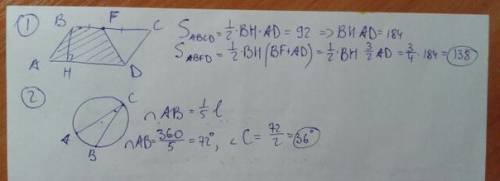 1
B F C
A H D
S ABCD = 1/2 · BH · AD = 92 => BH AD = 184
S ABFD = 1/2 · BH (BF + AD) = 1/2 · BH · 3/2 AD = 3/4 · 184 = 138
2
C
A
B
∩ AB = 1/5 l
∩ AB = 360/5 = 72°, ∠C = 72/2 = 36°